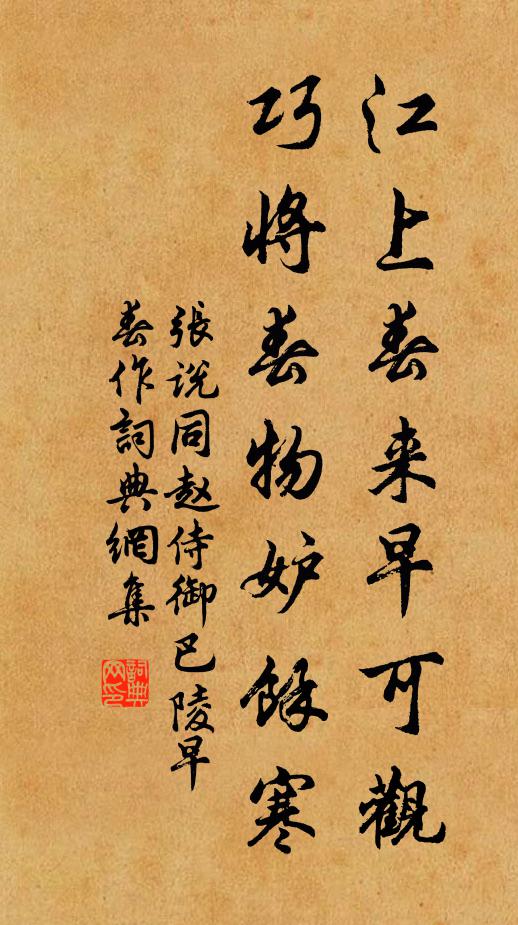 江上春来早可觀
巧将春物妒餘寒
張説同赵侍御巴陵早
春作詞典網集
詞典
网印